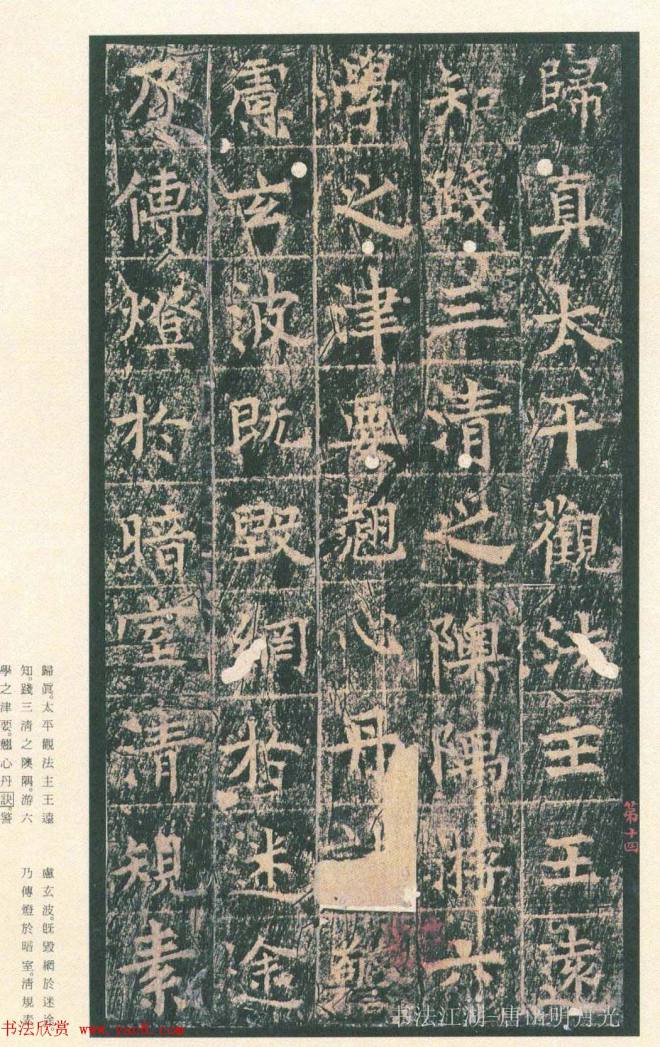 歸真太平觀法主王遠
知踐三清之隩隅游六
學之津要翹心丹
慮玄波既毀網於迷途
乃傳燈於暗室清規素
第十四
歸眞。太平觀法主王遠
知。踐三清之隩隅。游六
學之津要。翹心丹訣。警
慮玄波。旣毀網於迷途
乃傳燈於暗室。清規素
书法欣赏 www.yac8.com
书法江湖-唐山明月光